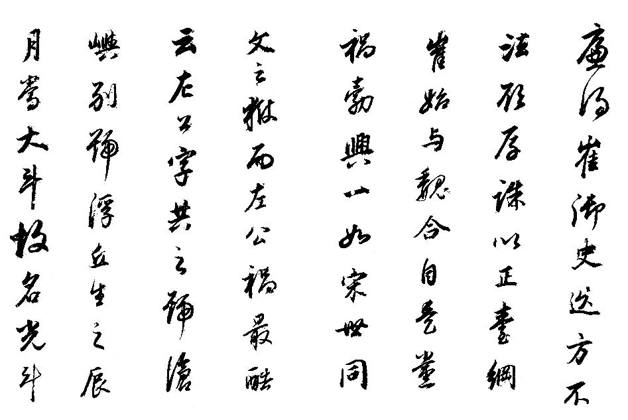 廉得崔御史巡方不
法欲厚誅以正臺綱
崔始与魏合自是黨
禍勃興一如宋世同
文之獄而左公禍最酷
云左公字共之號滄
嶼別號浮丘生之辰
月當大斗故名光斗